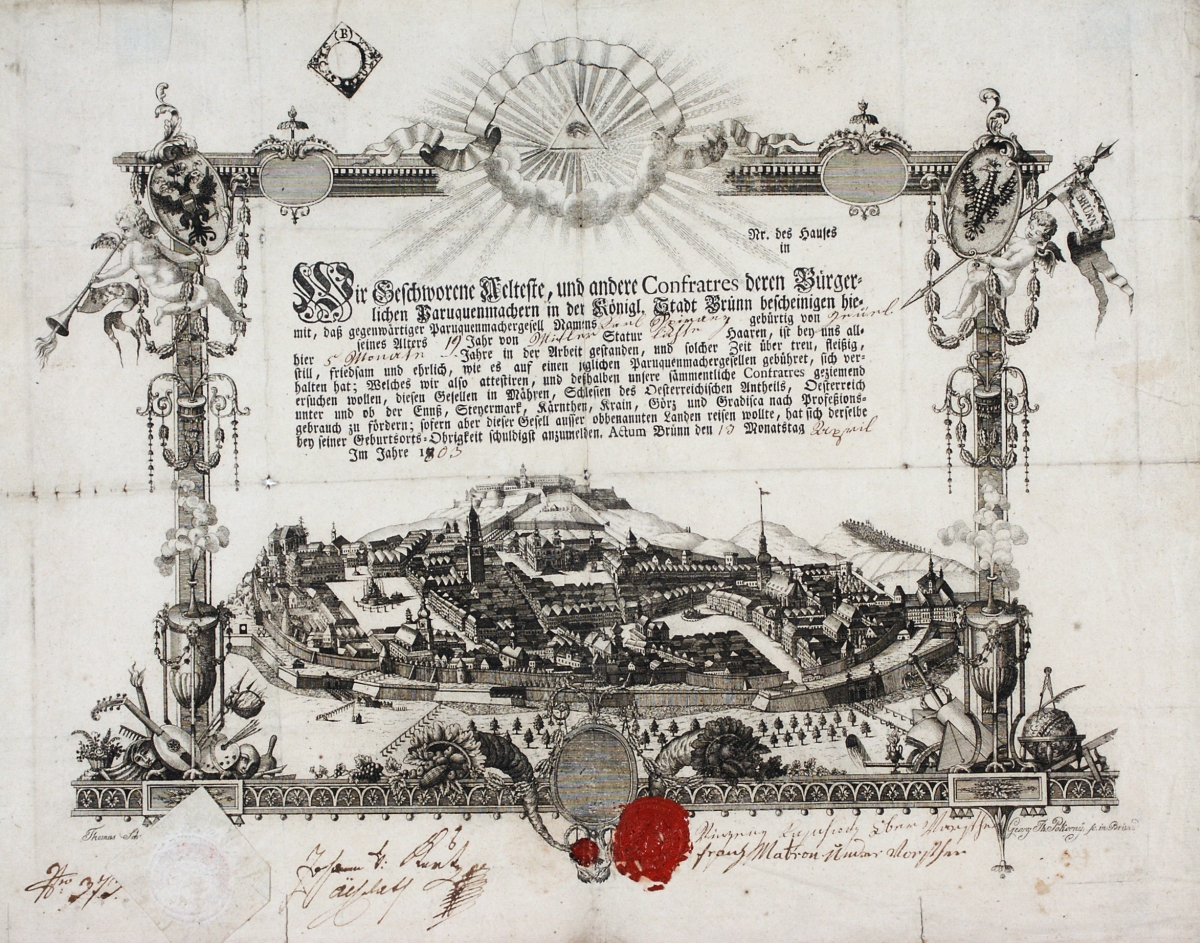 B
BRÜNN
Nr. des Hauses
in
Wir Geschworene Aelteste, und andere Confratres deren Bürger-
lichen Paruquenmachern in der Königl. Stadt Brünn bescheinigen hie-
mit, daß gegenwärtiger Paruquenmachergesell Namens Carl gebürtig von
seines Alters 19 Jahr von Mitter Statur Haaren, ist bey uns all-
hier 5 Monath Jahre in der Arbeit gestanden, und solcher Zeit über treu, fleißig,
still, friedsam und ehrlich, wie es auf einen jglichen Paruquenmachergesellen gebühret, sich ver-
halten hat; Welches wir also attestiren, und deßhalben unsere sämmentliche Confratres geziemend
ersuchen wollen, diesen Gesellen in Mähren, Schlesien des Oesterreichischen Antheils, Oesterreich
unter und ob der Ennß, Steyermark, Kärnthen, Krain, Görz und Gradisca nach Profeßions-
gebrauch zu fördern; sofern aber dieser Gesell ausser obbenannten Landen reisen wollte, hat sich derselbe
bey seiner Geburtsorts-Obrigkeit schuldigst anzumelden. Actum Brünn den 13 Monatstag April
Im Jahre 1803
Thomas
Georg
Franz Matron Under Vorsther
Nro 37